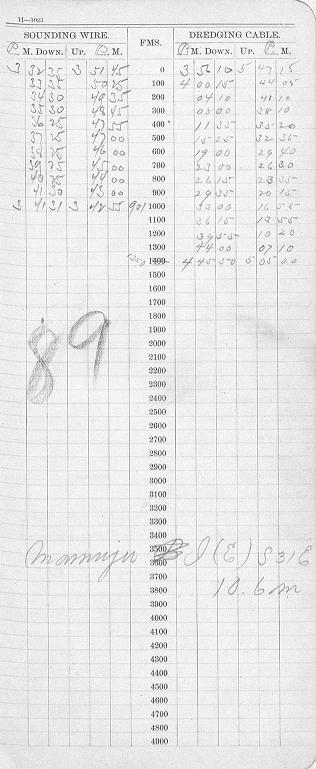 11—1021
SOUNDING WIRE. FMS. DREDGING CABLE.
P. M. Down. Up. P. M. P. M. Down. Up. P. M.
3 32 35 3 51 45 0 3 56 10 5 47 15
50 25 100 4 00 15 44 05
34 30 49 35 200 04 10 41 10
35 30 48 45 300 05 00 38 10
36 25 47 55 400 11 35 35 20
37 25 47 00 500 15 25 32 35
38 25 46 00 600 19 00 29 40
39 25 45 00 700 23 00 26 30
40 25 44 00 800 26 15 23 35
41 30 43 00 900 29 35 20 15
3 41 31 3 42 55 901 1000 33 00 16 55
1100 36 15 13 55
1200 39 55 10 20
1300 44 00 07 10
1350 1400 4 45 50 5 05 00
1500
1600
1700
1800
89
1900
2000
2100
2200
2300
2400
2500
2600
2700
2800
2900
3000
3100
3200
3300
3400
3500
Mamuju I (E) S 31 E
3600
3700
10.6 m
3800
3900
4000
4100
4200
4300
4400
4500
4600
4700
4800
4900